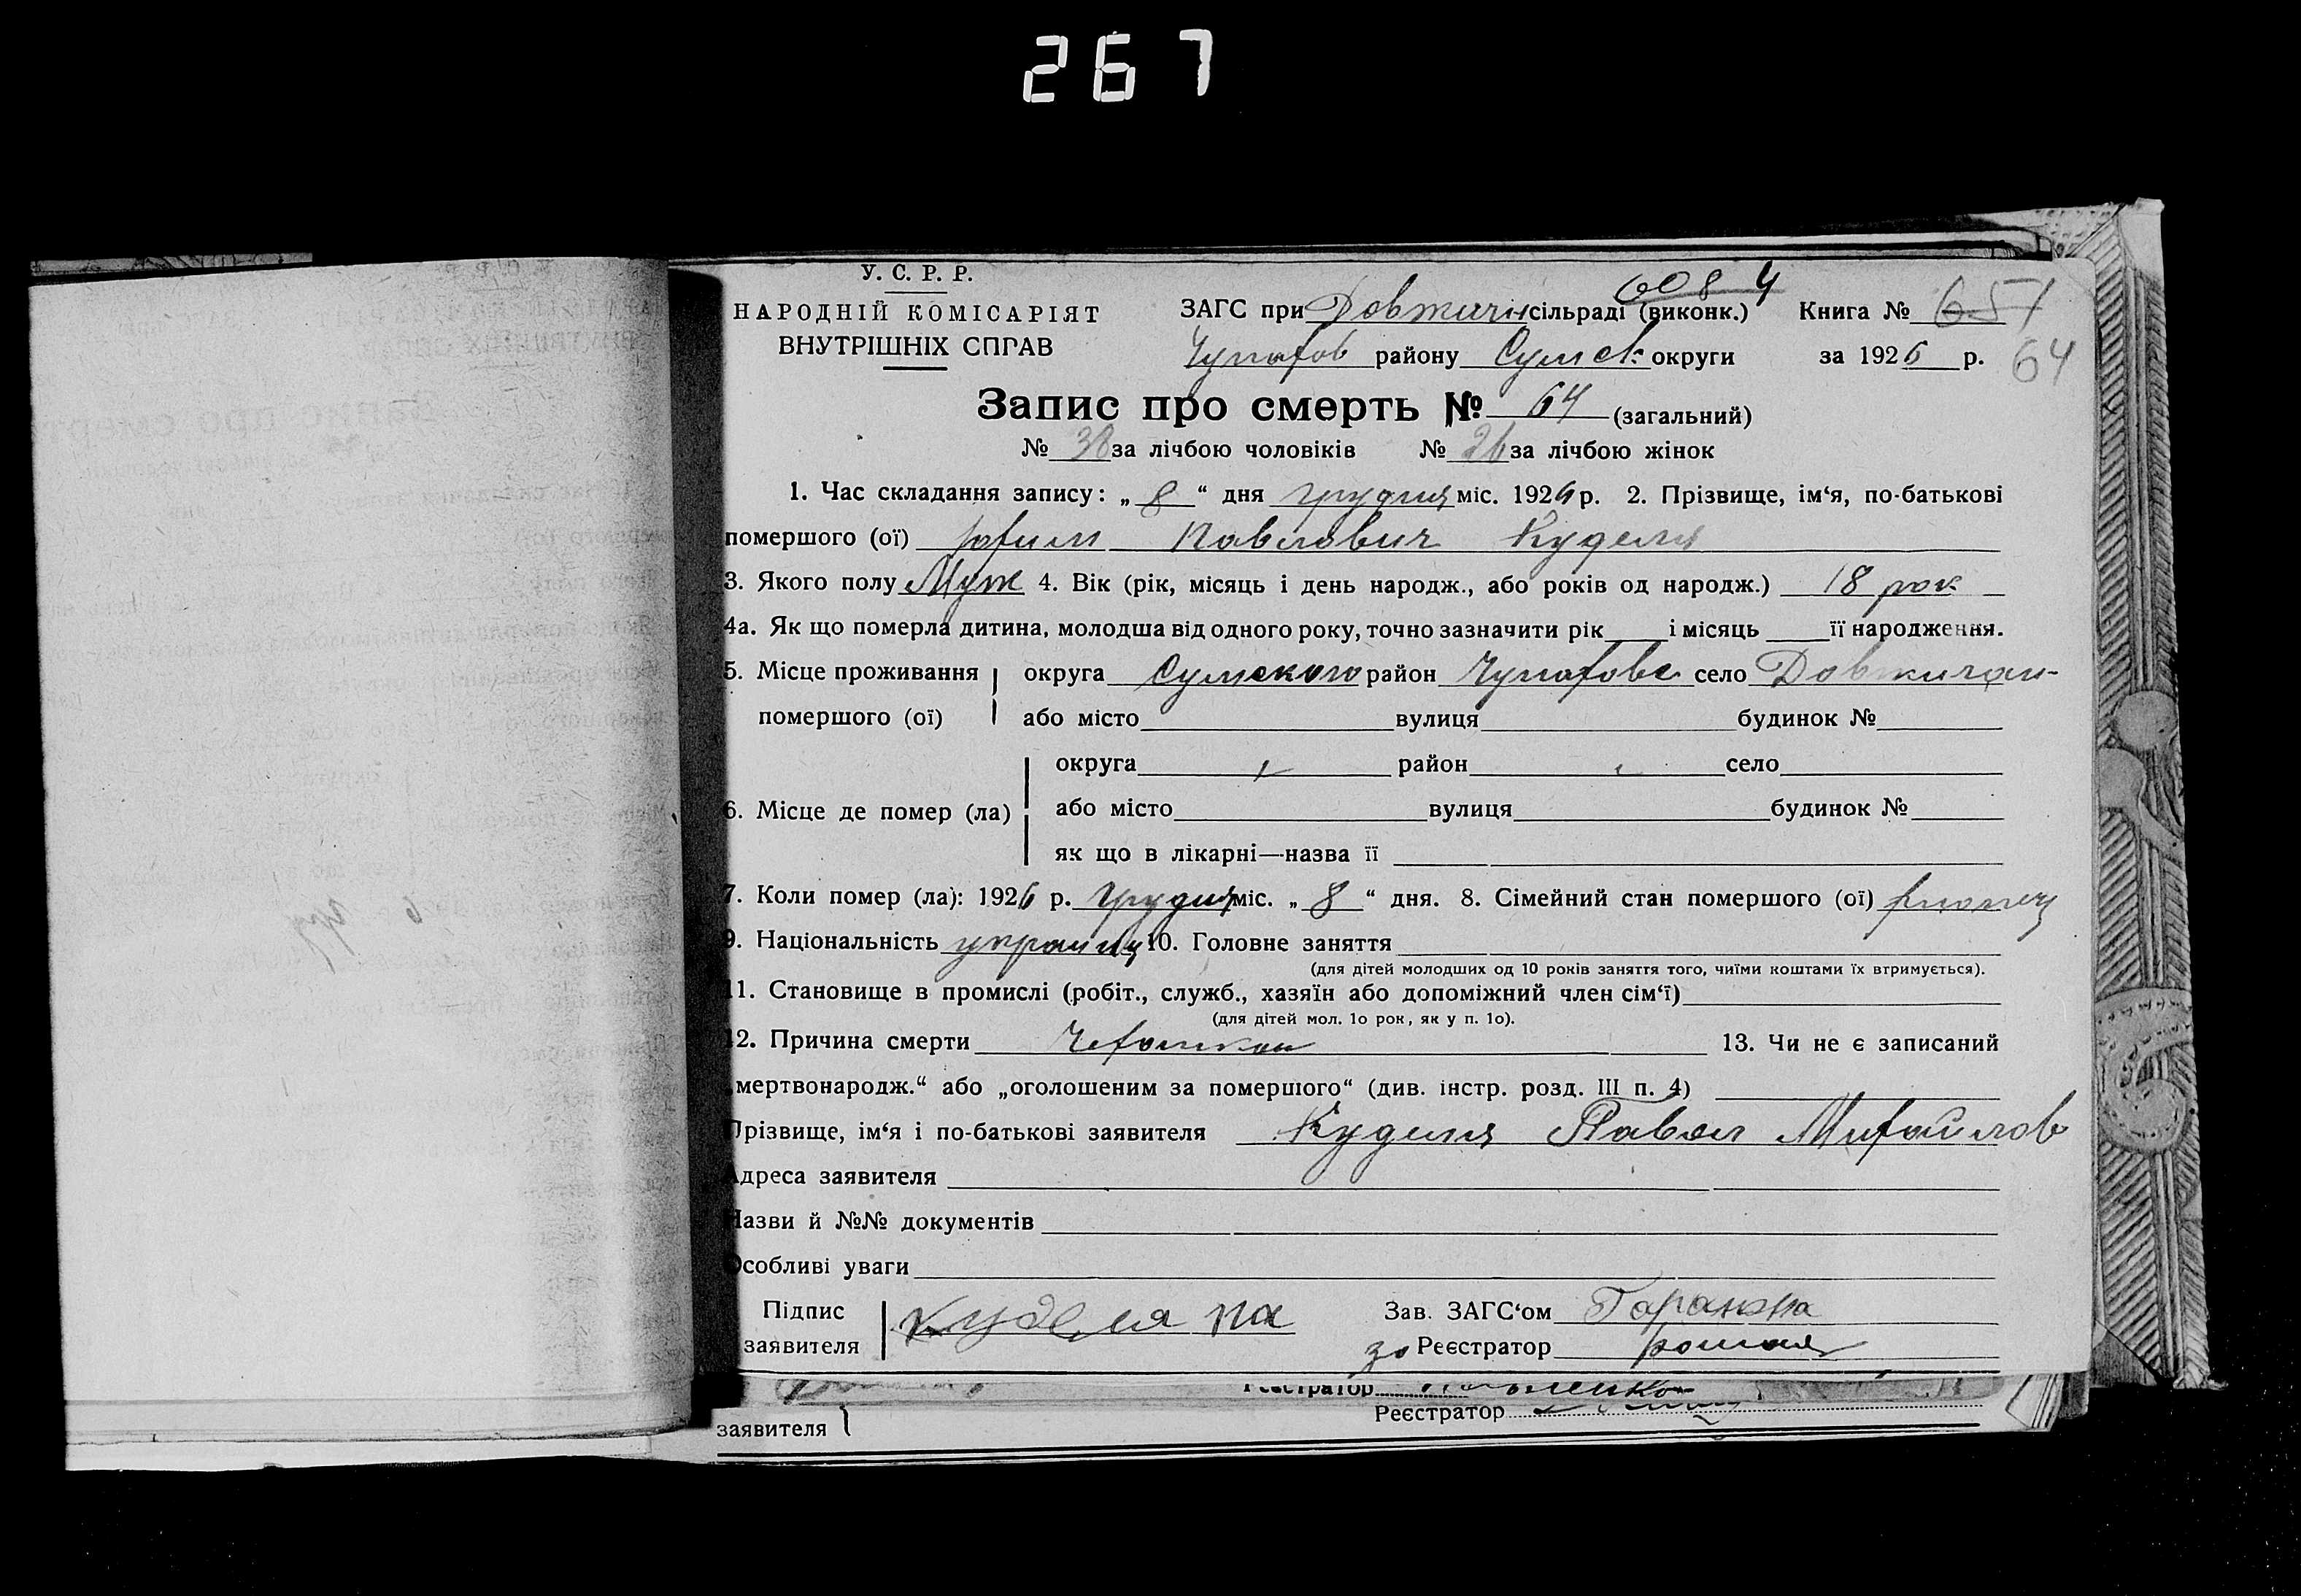 267
У. С. Р. Р.
НАРОДНІЙ КОМІСАРІЯТ
ВНУТРІШНІХ СПРАВ
6084
ЗАГС при Довжичан сільраді (виконк.) Книга № 651
Чупахов району Сумск округи за 1926 р. 64
Запис про смерть № 64 (загальний)
№ 38 за лічбою чоловіків № 26 за лічбою жінок
1. Час складання запису: „ 8 “ дня грудня міс. 1926 р. 2. Прізвище, ім‘я, по-батькові
помершого (ої) Павлович Куделя
3. Якого полу Муж 4. Вік (рік, місяць і день народж., або років од народж.) 18 рок
4а. Як що померла дитина, молодша від одного року, точно зазначити рік і місяць її народження.
5. Місце проживання округа Сумского район Чупахове село Довжичан-
помершого (ої) або місто вулиця будинок №
округа район село
6. Місце де помер (ла) або місто вулиця будинок №
як що в лікарні—назва її
7. Коли помер (ла): 1926 р. грудня міс. „ 8 “ дня. 8. Сімейний стан помершого (ої)
9. Національність україн 10. Головне заняття
(для дітей молодших од 10 років заняття того, чиїми коштами їх втримується).
11. Становище в промислі (робіт., служб., хазяїн або допоміжний член сім‘ї)
(для дітей мол. 10 рок, як у п. 10).
12. Причина смерти 13. Чи не є записаний
„мертвонародж.“ або „оголошеним за помершого“ (див. інстр. розд. III п. 4)
Прізвище, ім‘я і по-батькові заявителя Куделя Павел Михайлов
Адреса заявителя
Назви й №№ документів
Особливі уваги
Підпис Зав. ЗАГС‘ом
заявителя Куделя па
за Реєстратор
Реєстратор
заявителя Реєстратор